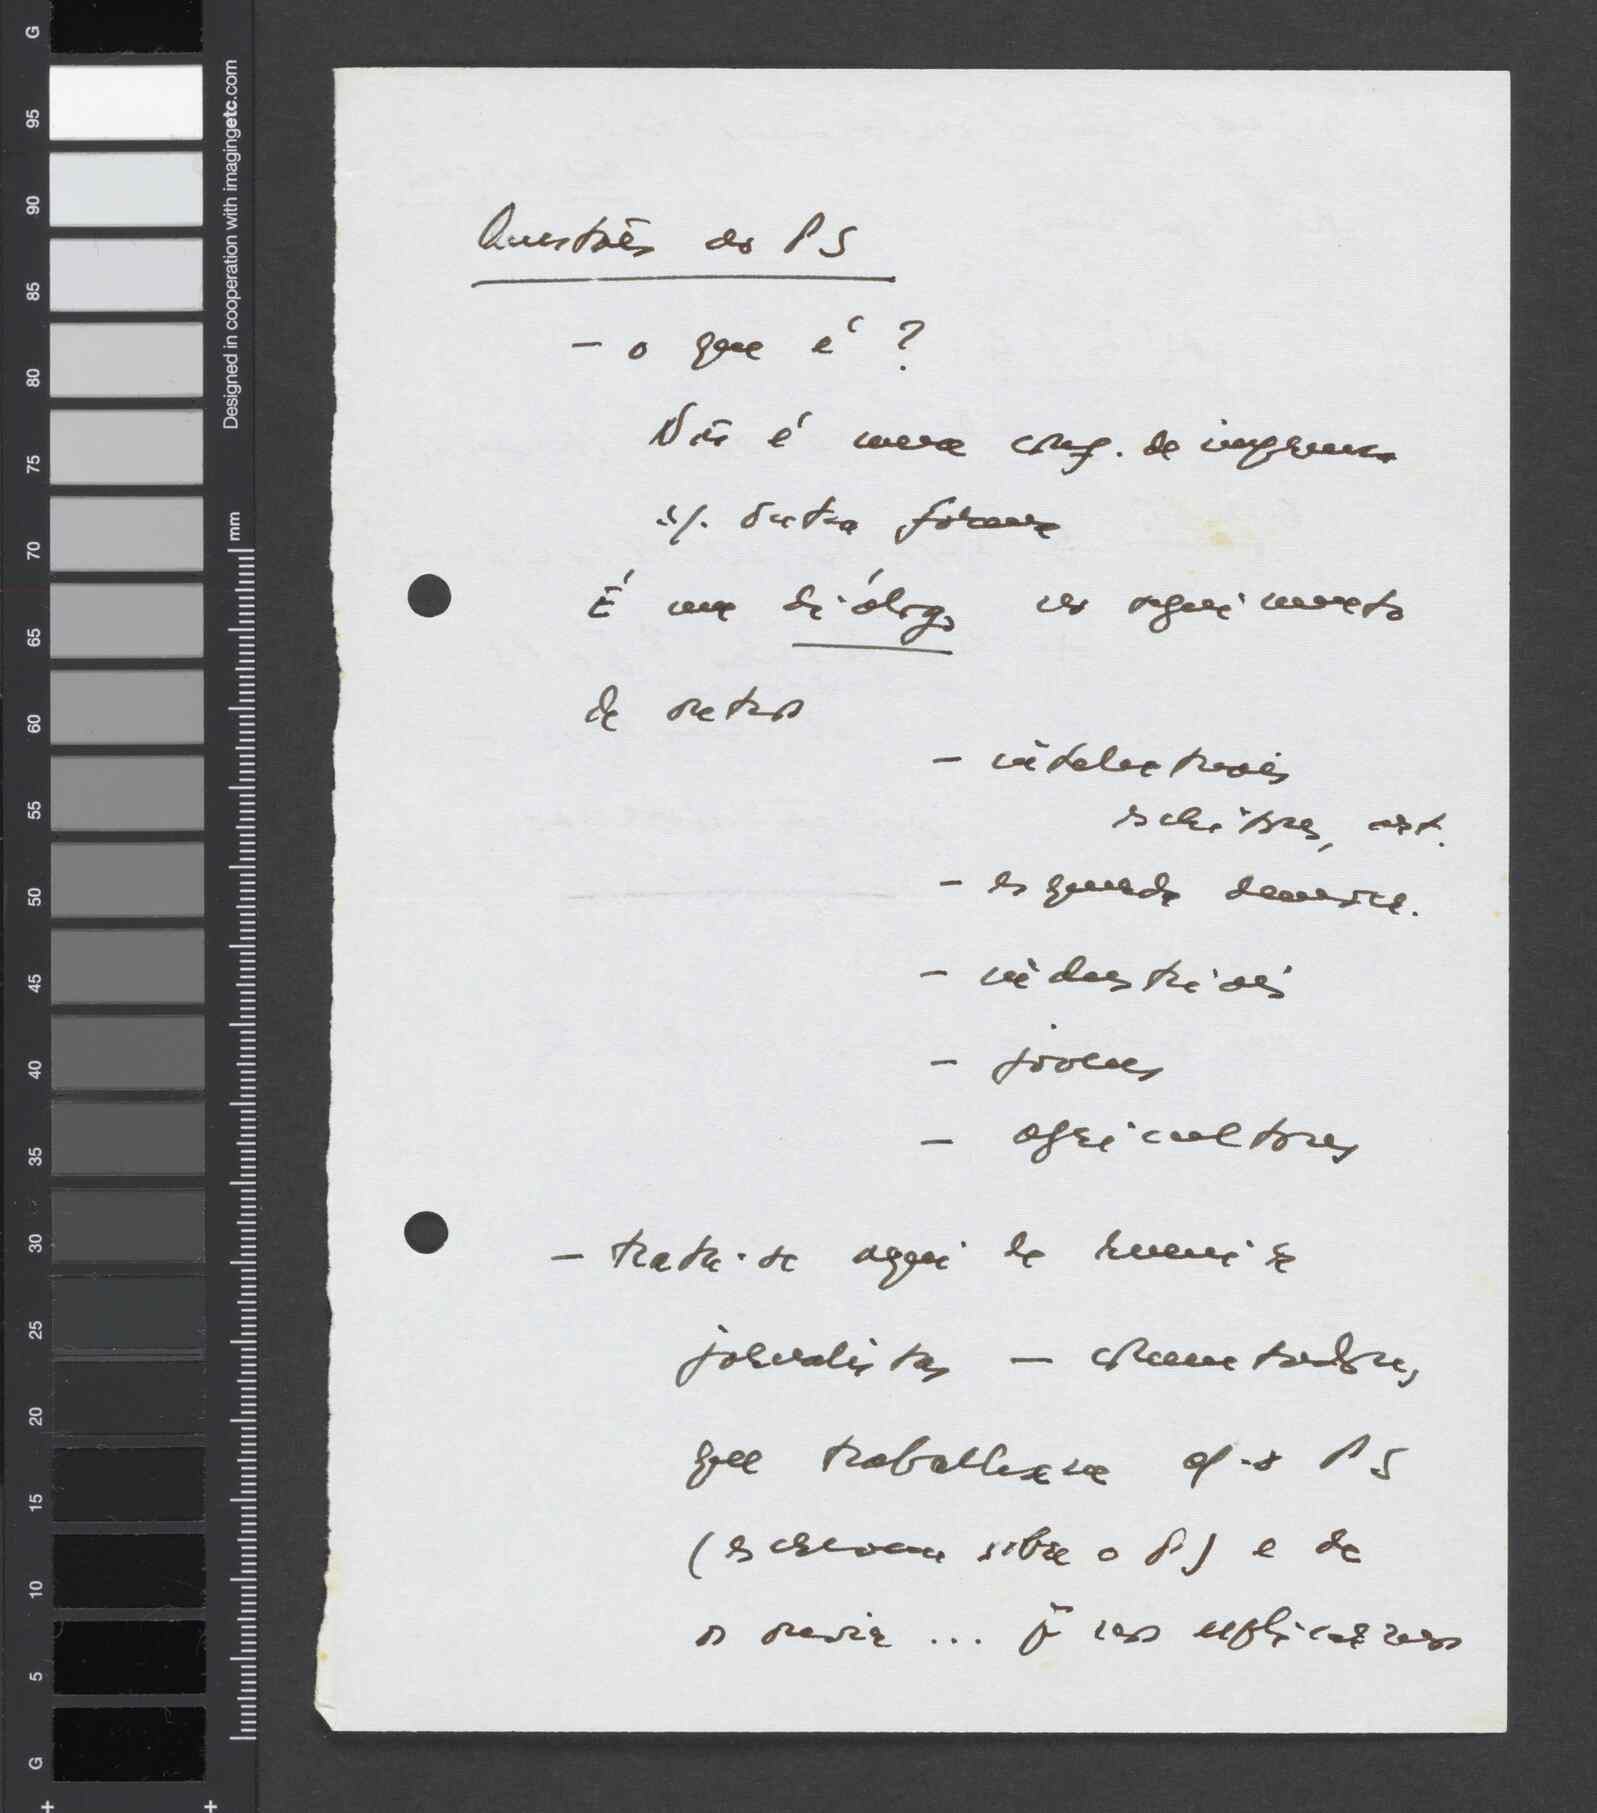 Questões do PS
- o que é ?
Não é uma conf. de imprensa
s/. outra forma
É um diálogo no seguimento
de outros
- intelectuais
escritores, art.
- esquerda democr.
- industriais
- jovens
- agricultores
- trata-se aqui de reunir
jornalistas - comentadores,
que trabalham o PS
(escrevem sobre o PS) e de
os ouvir ... p nos explicarmos
G
95
90
85
80
75
70
65
60
55
50
45
40
35
30
25
20
15
10
5
G
Designed in cooperation with imagingetc.com
mm